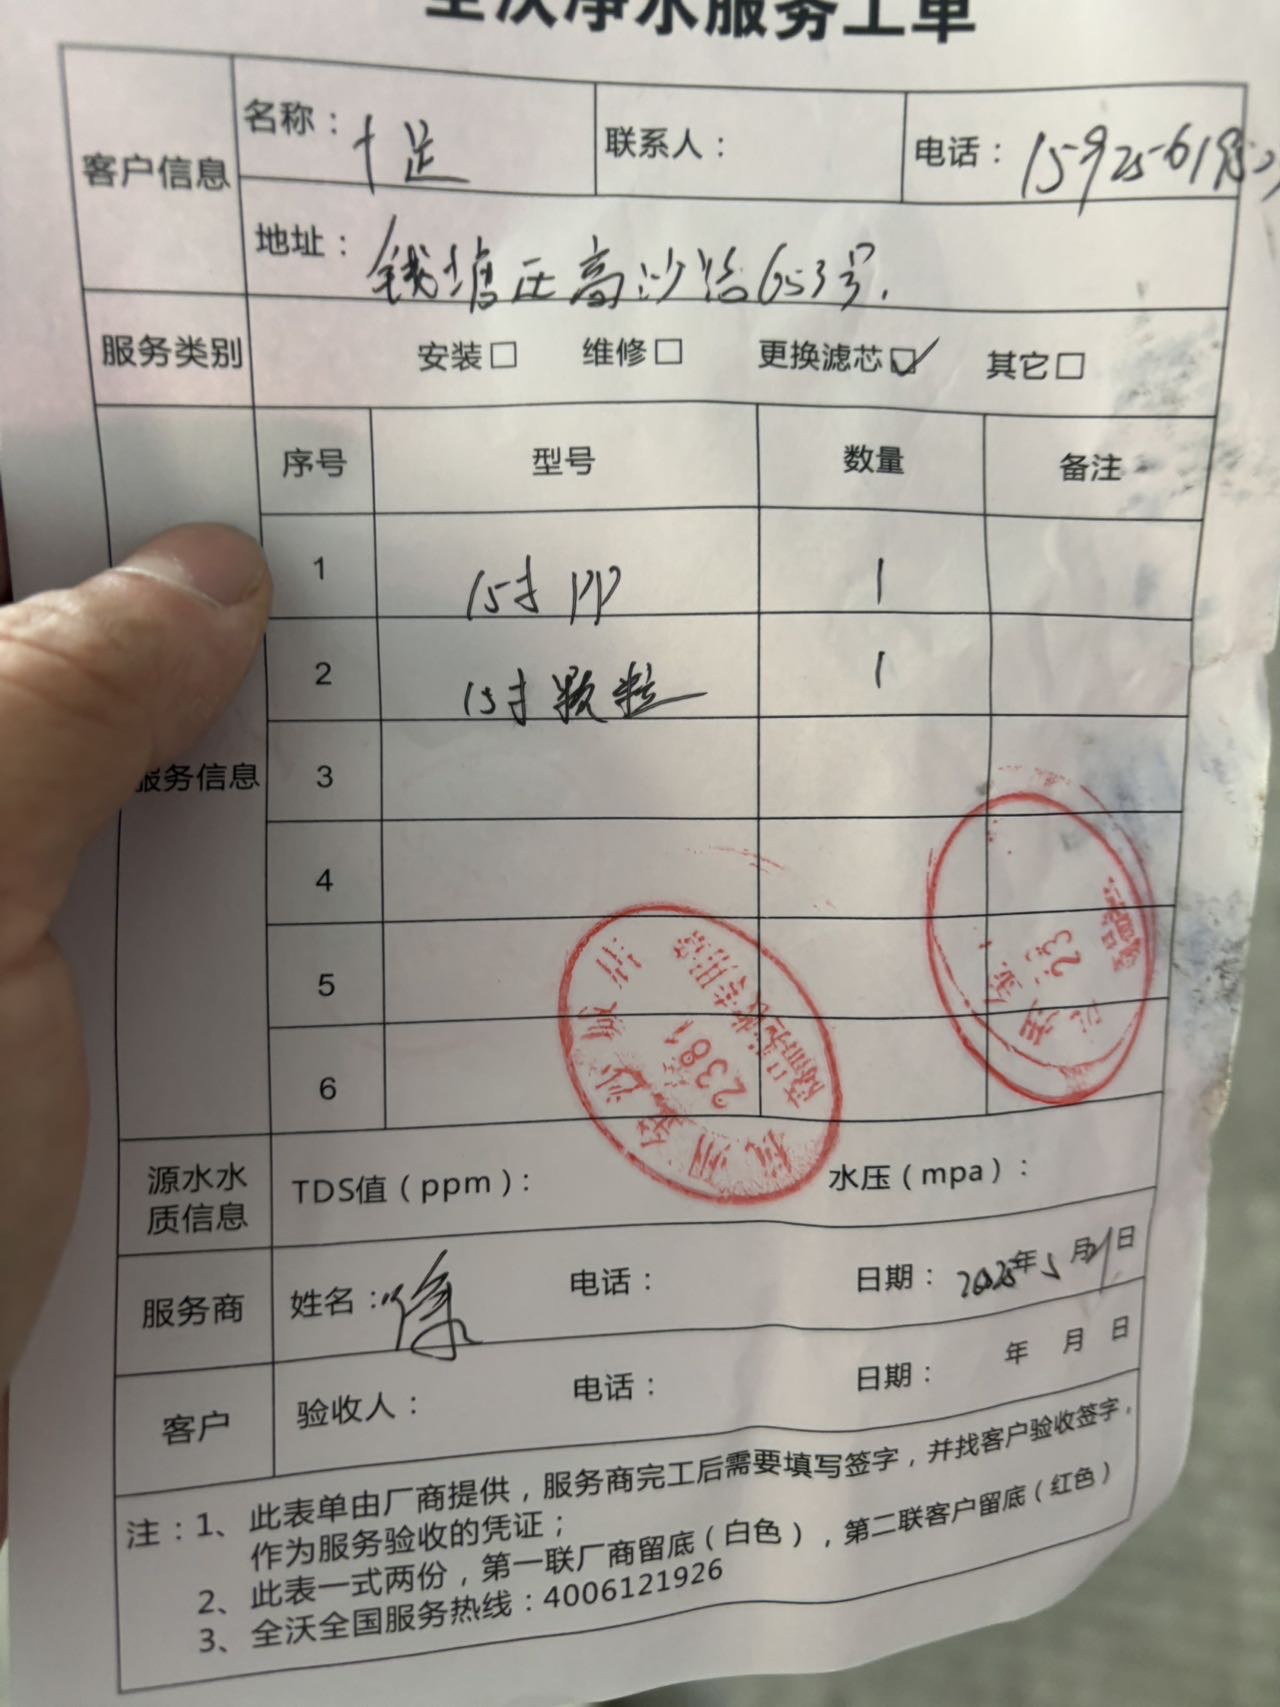 全沃净水服务工单
客户信息
名称：十足
联系人：
电话：
地址：钱塘区高沙路653号.
服务类别
安装□ 维修□ 更换滤芯☑ 其它□
服务信息
序号 型号 数量 备注
1 15寸 PP 1
2 15寸颗粒 1
3
4
5
6
2381
商品验收专用章
23
源水水质信息
TDS值（ppm）：
水压（mpa）：
服务商
姓名：徐
电话：
日期： 年5月21日
客户
验收人：
电话：
日期： 年 月 日
注：1、此表单由厂商提供，服务商完工后需要填写签字，并找客户验收签字，
作为服务验收的凭证；
2、此表一式两份，第一联厂商留底（白色），第二联客户留底（红色）
3、全沃全国服务热线：4006121926